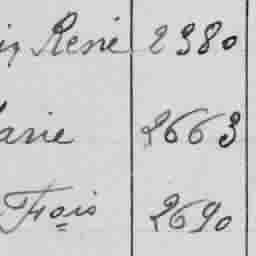 René 2380
Marie 2663
Frois 2690